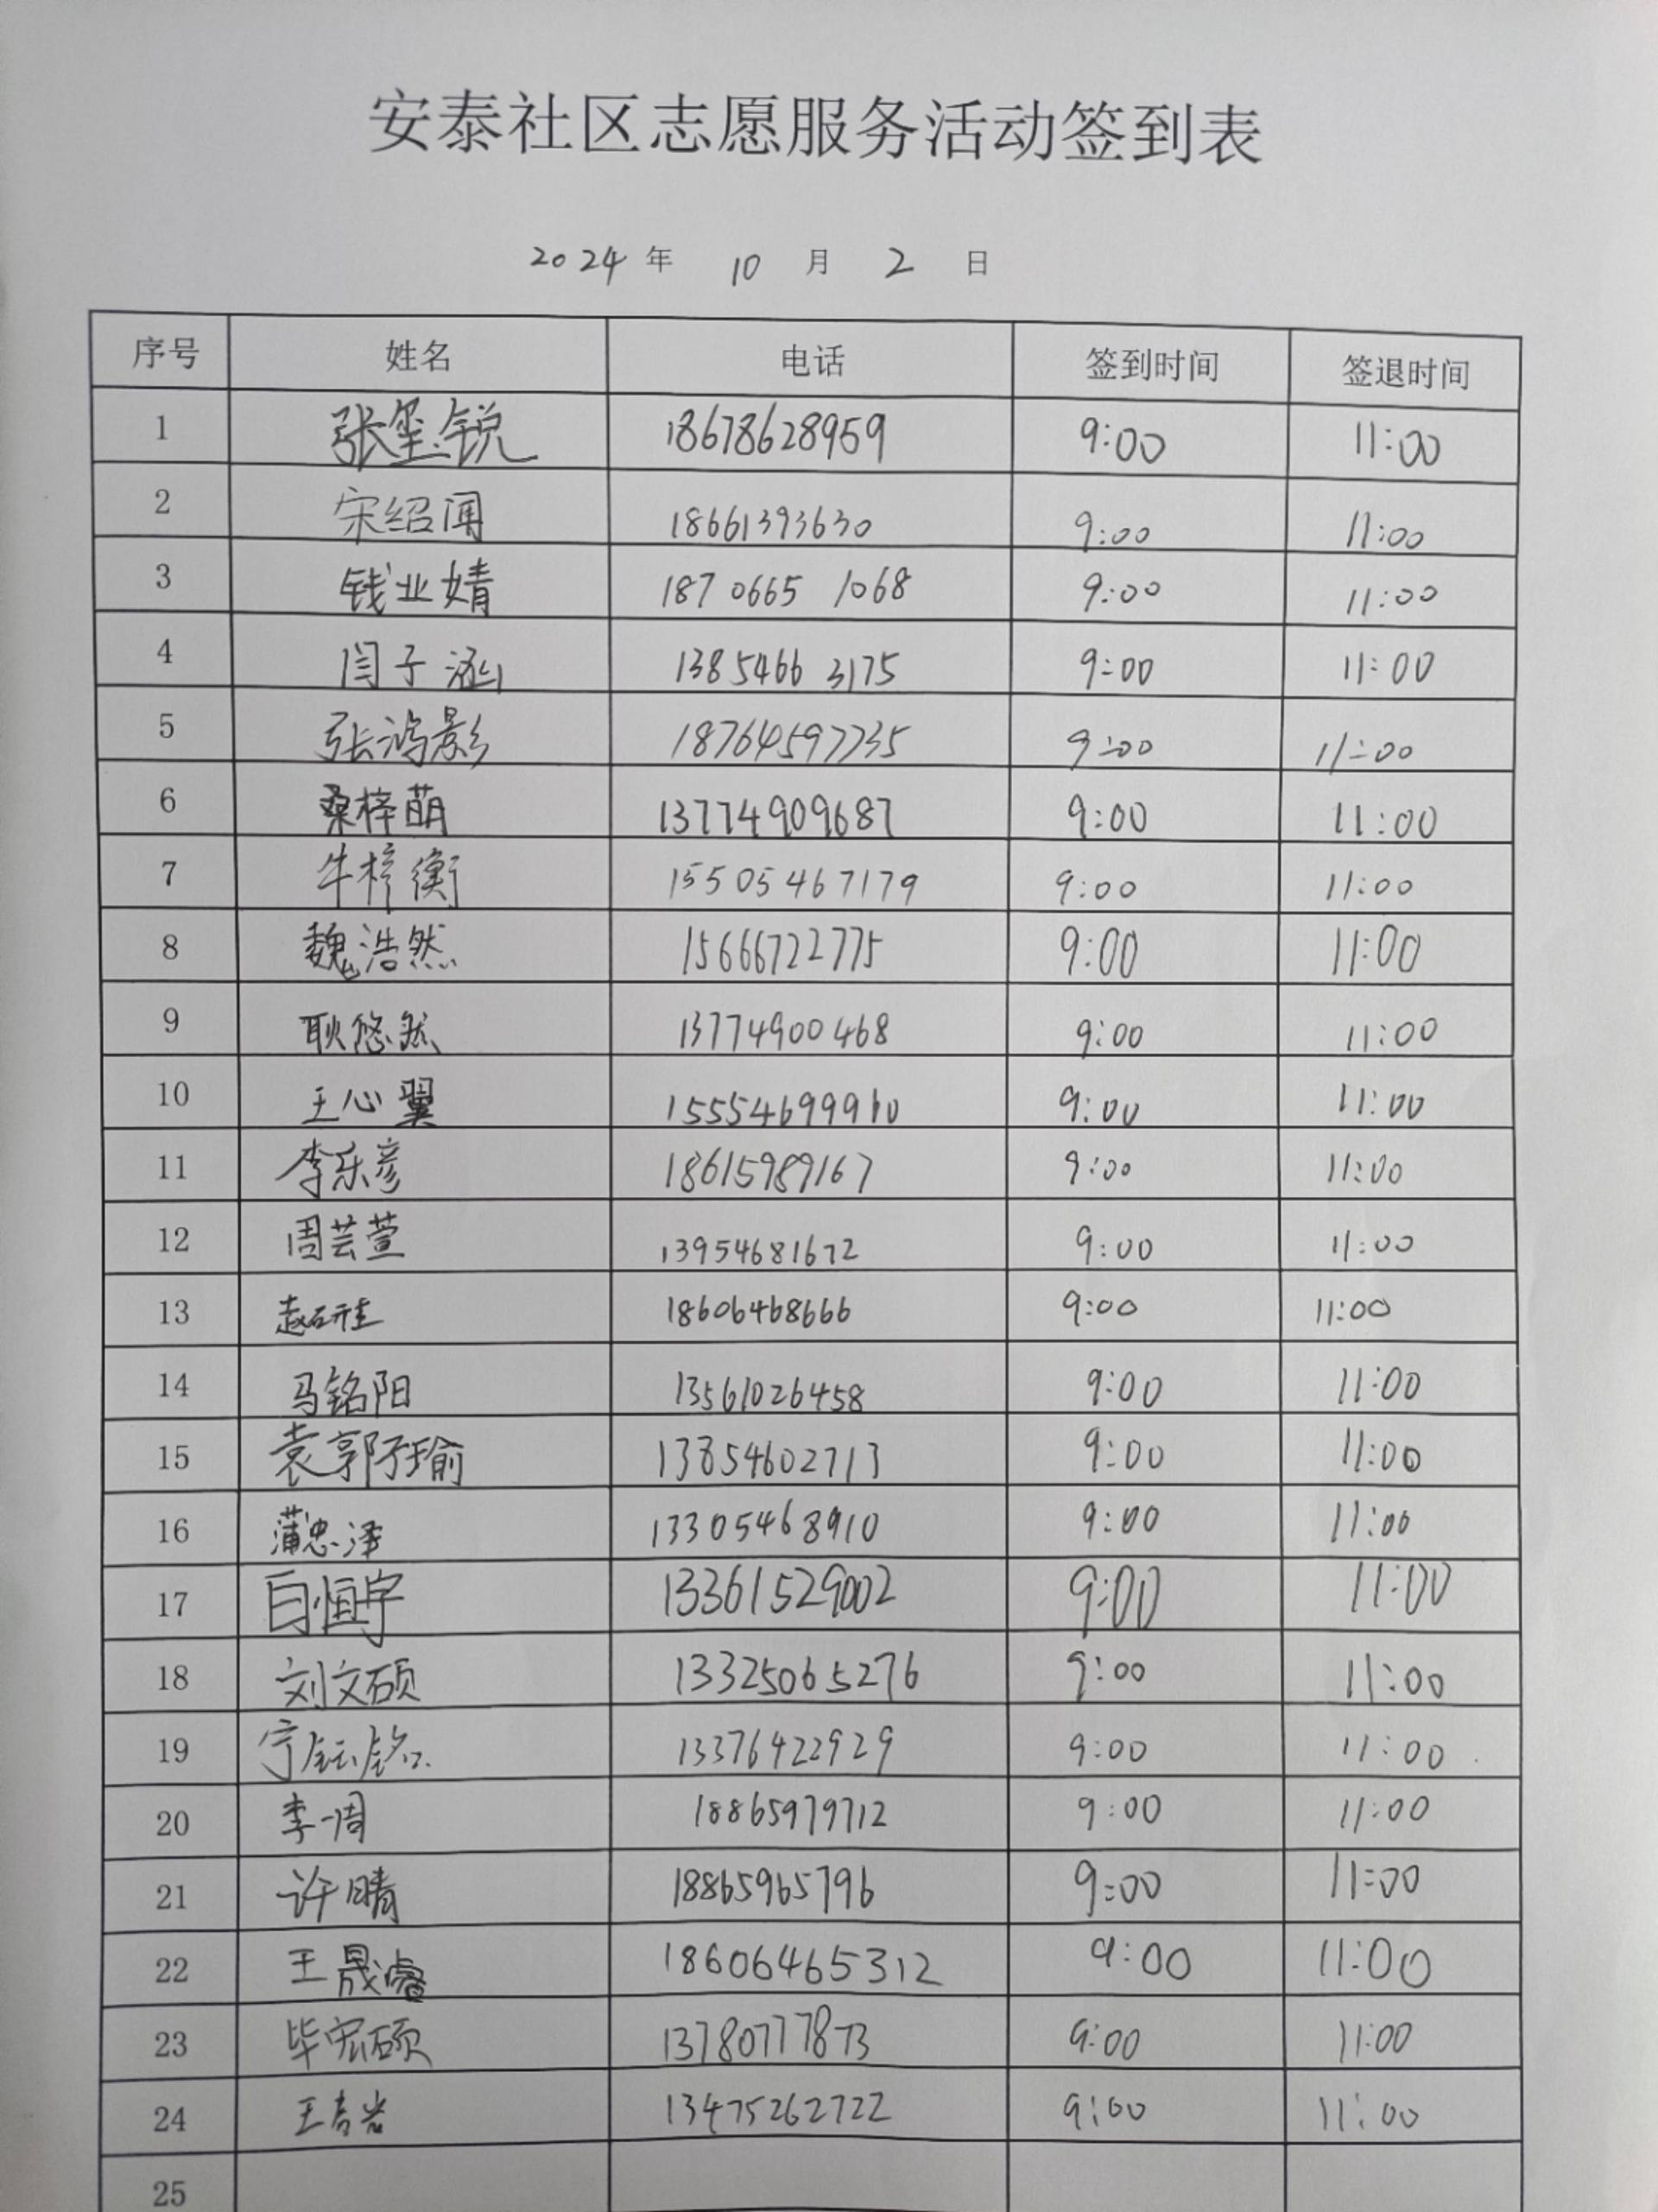 安泰社区志愿服务活动签到表
2024 年 10 月 2 日
序号 姓名 电话 签到时间 签退时间
1 张玺锐 18678628959 9:00 11:00
2 宋绍闻 18661393630 9:00 11:00
3 钱业婧 187 0665 1068 9:00 11:00
4 闫子涵 1385466 3175 9:00 11:00
5 张鸿影 18764597735 9:00 11:00
6 桑梓萌 13774909687 9:00 11:00
7 牛梓衡 15505467179 9:00 11:00
8 魏浩然 15666722775 9:00 11:00
9 耿悠然 13774900468 9:00 11:00
10 王心翼 15554699960 9:00 11:00
11 李乐彦 18615989167 9:00 11:00
12 周芸萱 13954681672 9:00 11:00
13 赵研 18606468666 9:00 11:00
14 马铭阳 13561026458 9:00 11:00
15 袁郭子瑜 13854602713 9:00 11:00
16 蒲忠泽 13305468910 9:00 11:00
17 白恒宇 13361529002 9:00 11:00
18 刘文硕 13325065276 9:00 11:00
19 宁钰铭 13376422929 9:00 11:00
20 李一周 18865979712 9:00 11:00
21 许晴 18865965796 9:00 11:00
22 王晟睿 18606465312 9:00 11:00
23 毕宏硕 13780777873 9:00 11:00
24 王 岩 13475262722 9:00 11:00
25